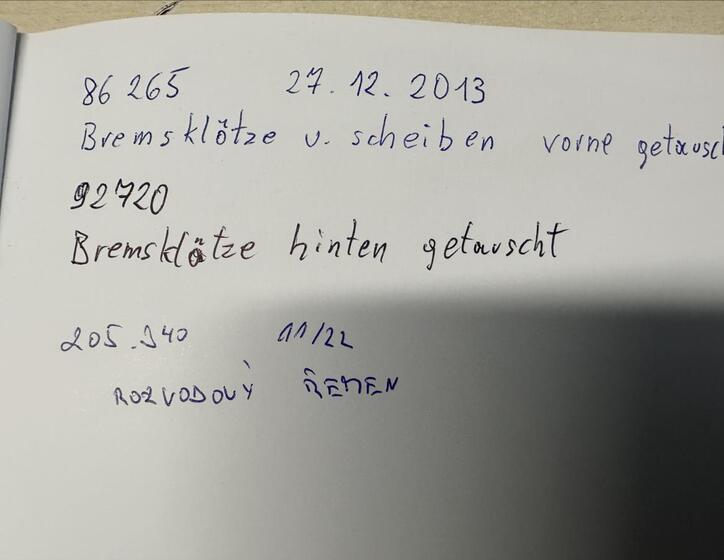 86 265 27.12.2013
Bremsklötze u. scheiben vorne getausch
92720
Bremsklötze hinten getauscht
205.940 11/22
ROZVODOVÝ ŘEMEN